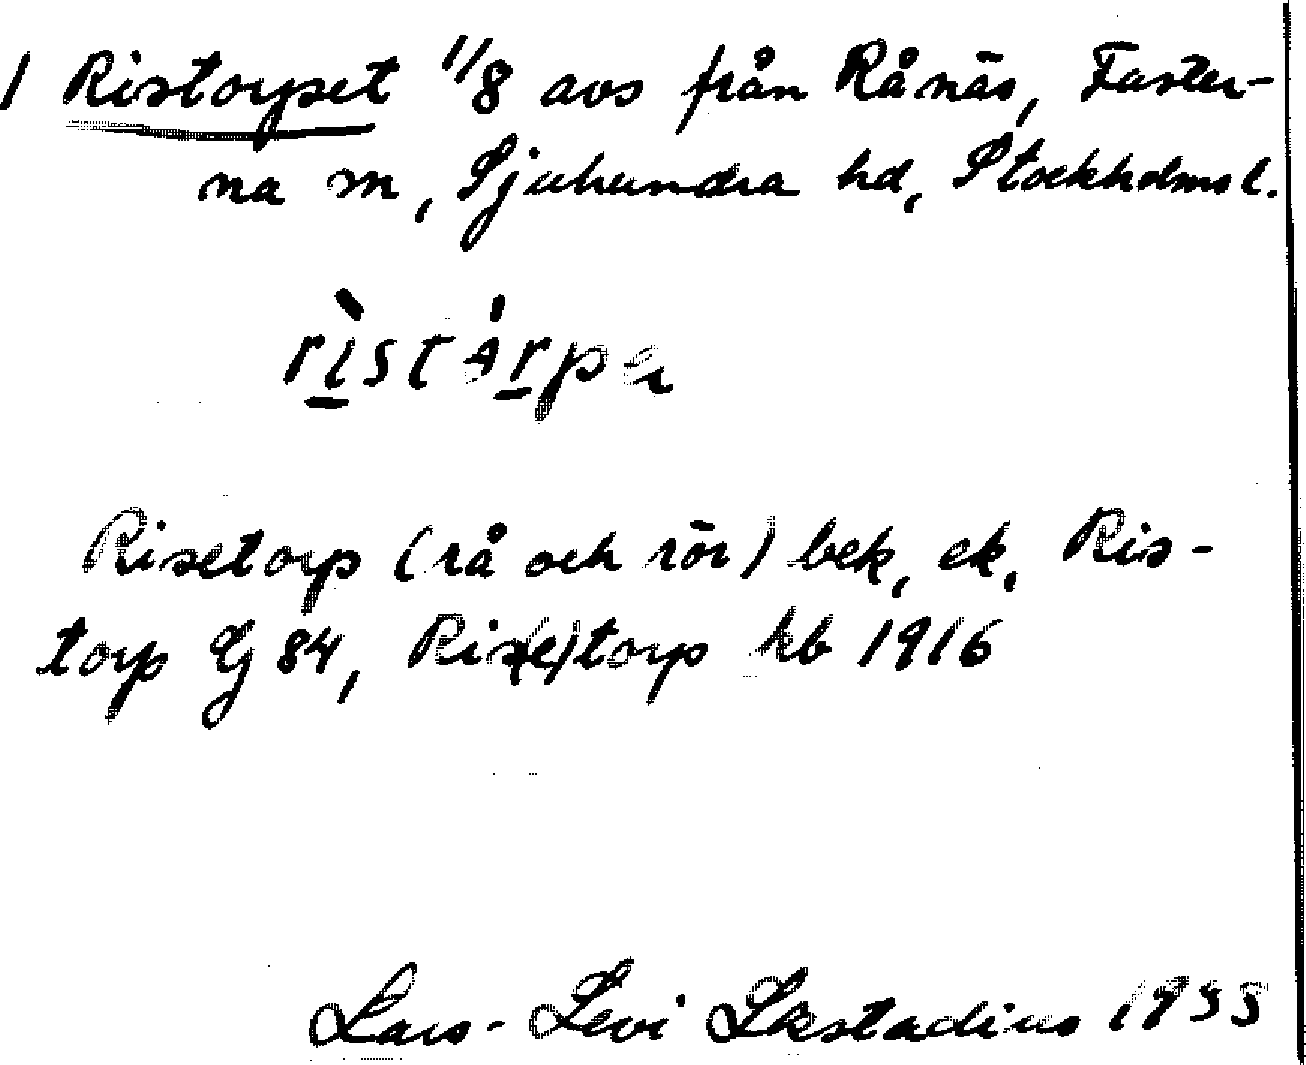 1 Ristorpet 1/8 avs från Rånäs, Faster-
na sn, Sjuhundra hd, Stockholms l.
Risetorp (rå och rör) bek, ek, Ris-
torp Gj 84, Ris(e)torp hb 1916
Lars-Levi Læstadius 1933